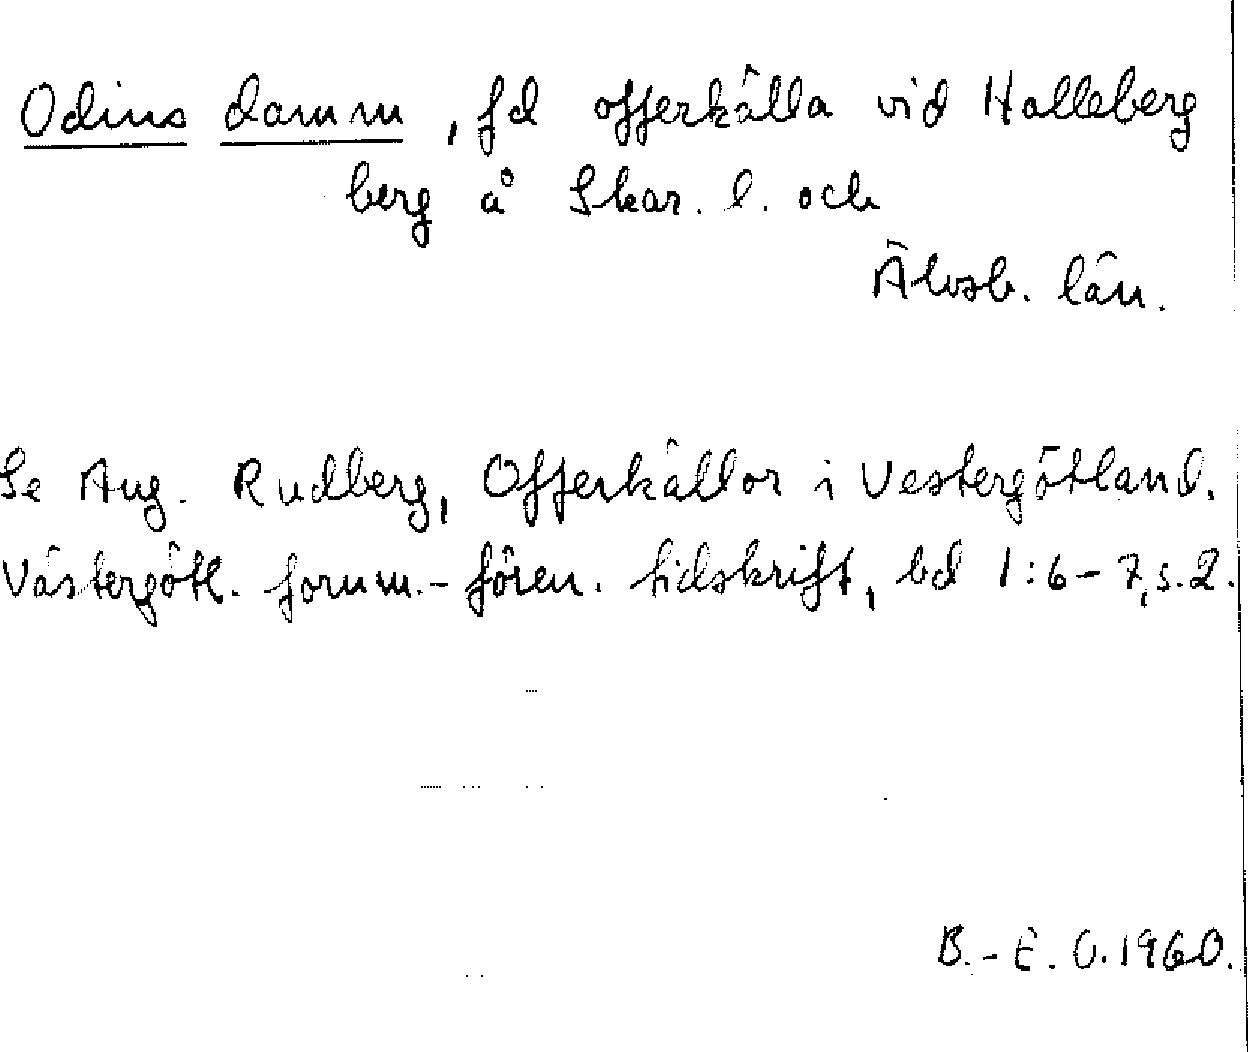 Odins damm, fd offerkälla vid Halleberg
berg å Skar. l. och
Älvsb. län.
Se Aug. Rudberg, Offerkällor i Vestergötland.
Västergötl. fornm.-fören. tidskrift, bd 1:6-7, s. 2.
B.-E. O. 1960.